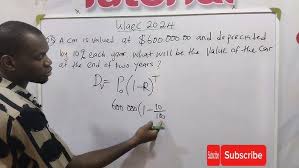 Tutorial
Waec 2024
A car is valued at $600.000.00 and depreciated
by 10% each year what will be the value of the car
at the end of two years?
Dv = P₀(1-R)^T
600,000(1 - 10/100
Subscribe
Subscribe